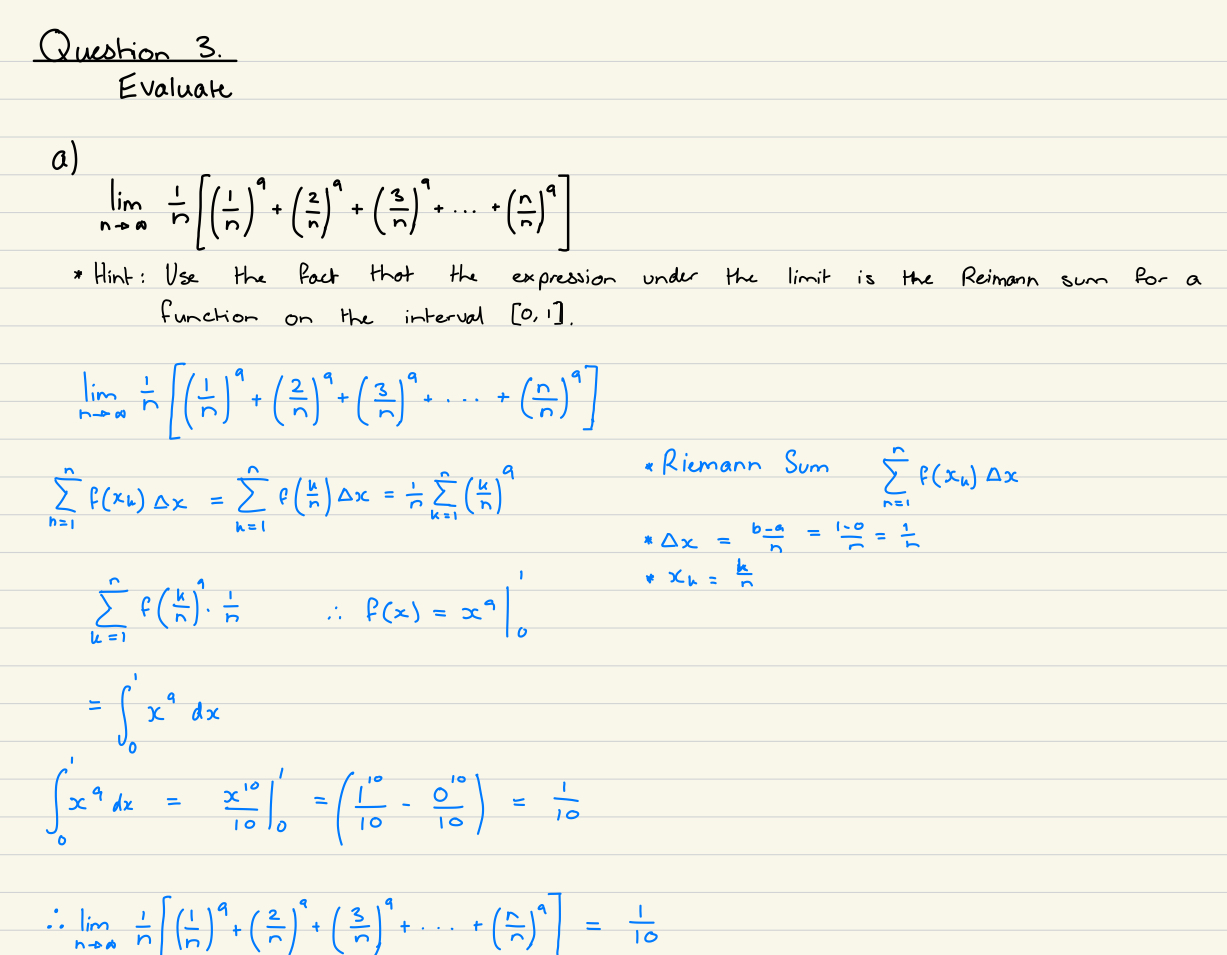 Question 3.
Evaluate
a)
lim n→∞ 1/n [(1/n)^9 + (2/n)^9 + (3/n)^9 + ... + (n/n)^9]
* Hint: Use the fact that the expression under the limit is the Reimann sum for a
function on the interval [0, 1].
lim n→∞ 1/n [(1/n)^9 + (2/n)^9 + (3/n)^9 + .... + (n/n)^9]
* Riemann Sum ∑_{n=1}^{n} f(x_k) Δx
∑_{n=1}^{n} f(x_k) Δx = ∑_{k=1}^{n} f(k/n) Δx = 1/n ∑_{k=1}^{n} (k/n)^9
* Δx = b-a/n = 1-0/n = 1/n
* x_k = k/n
∑_{k=1}^{n} f(k/n)^9 · 1/n ∴ f(x) = x^9 |_0^1
= ∫_0^1 x^9 dx
∫_0^1 x^9 dx = x^10/10 |_0^1 = (1^10/10 - 0^10/10) = 1/10
∴ lim n→∞ 1/n [(1/n)^9 + (2/n)^9 + (3/n)^9 + .... + (n/n)^9] = 1/10